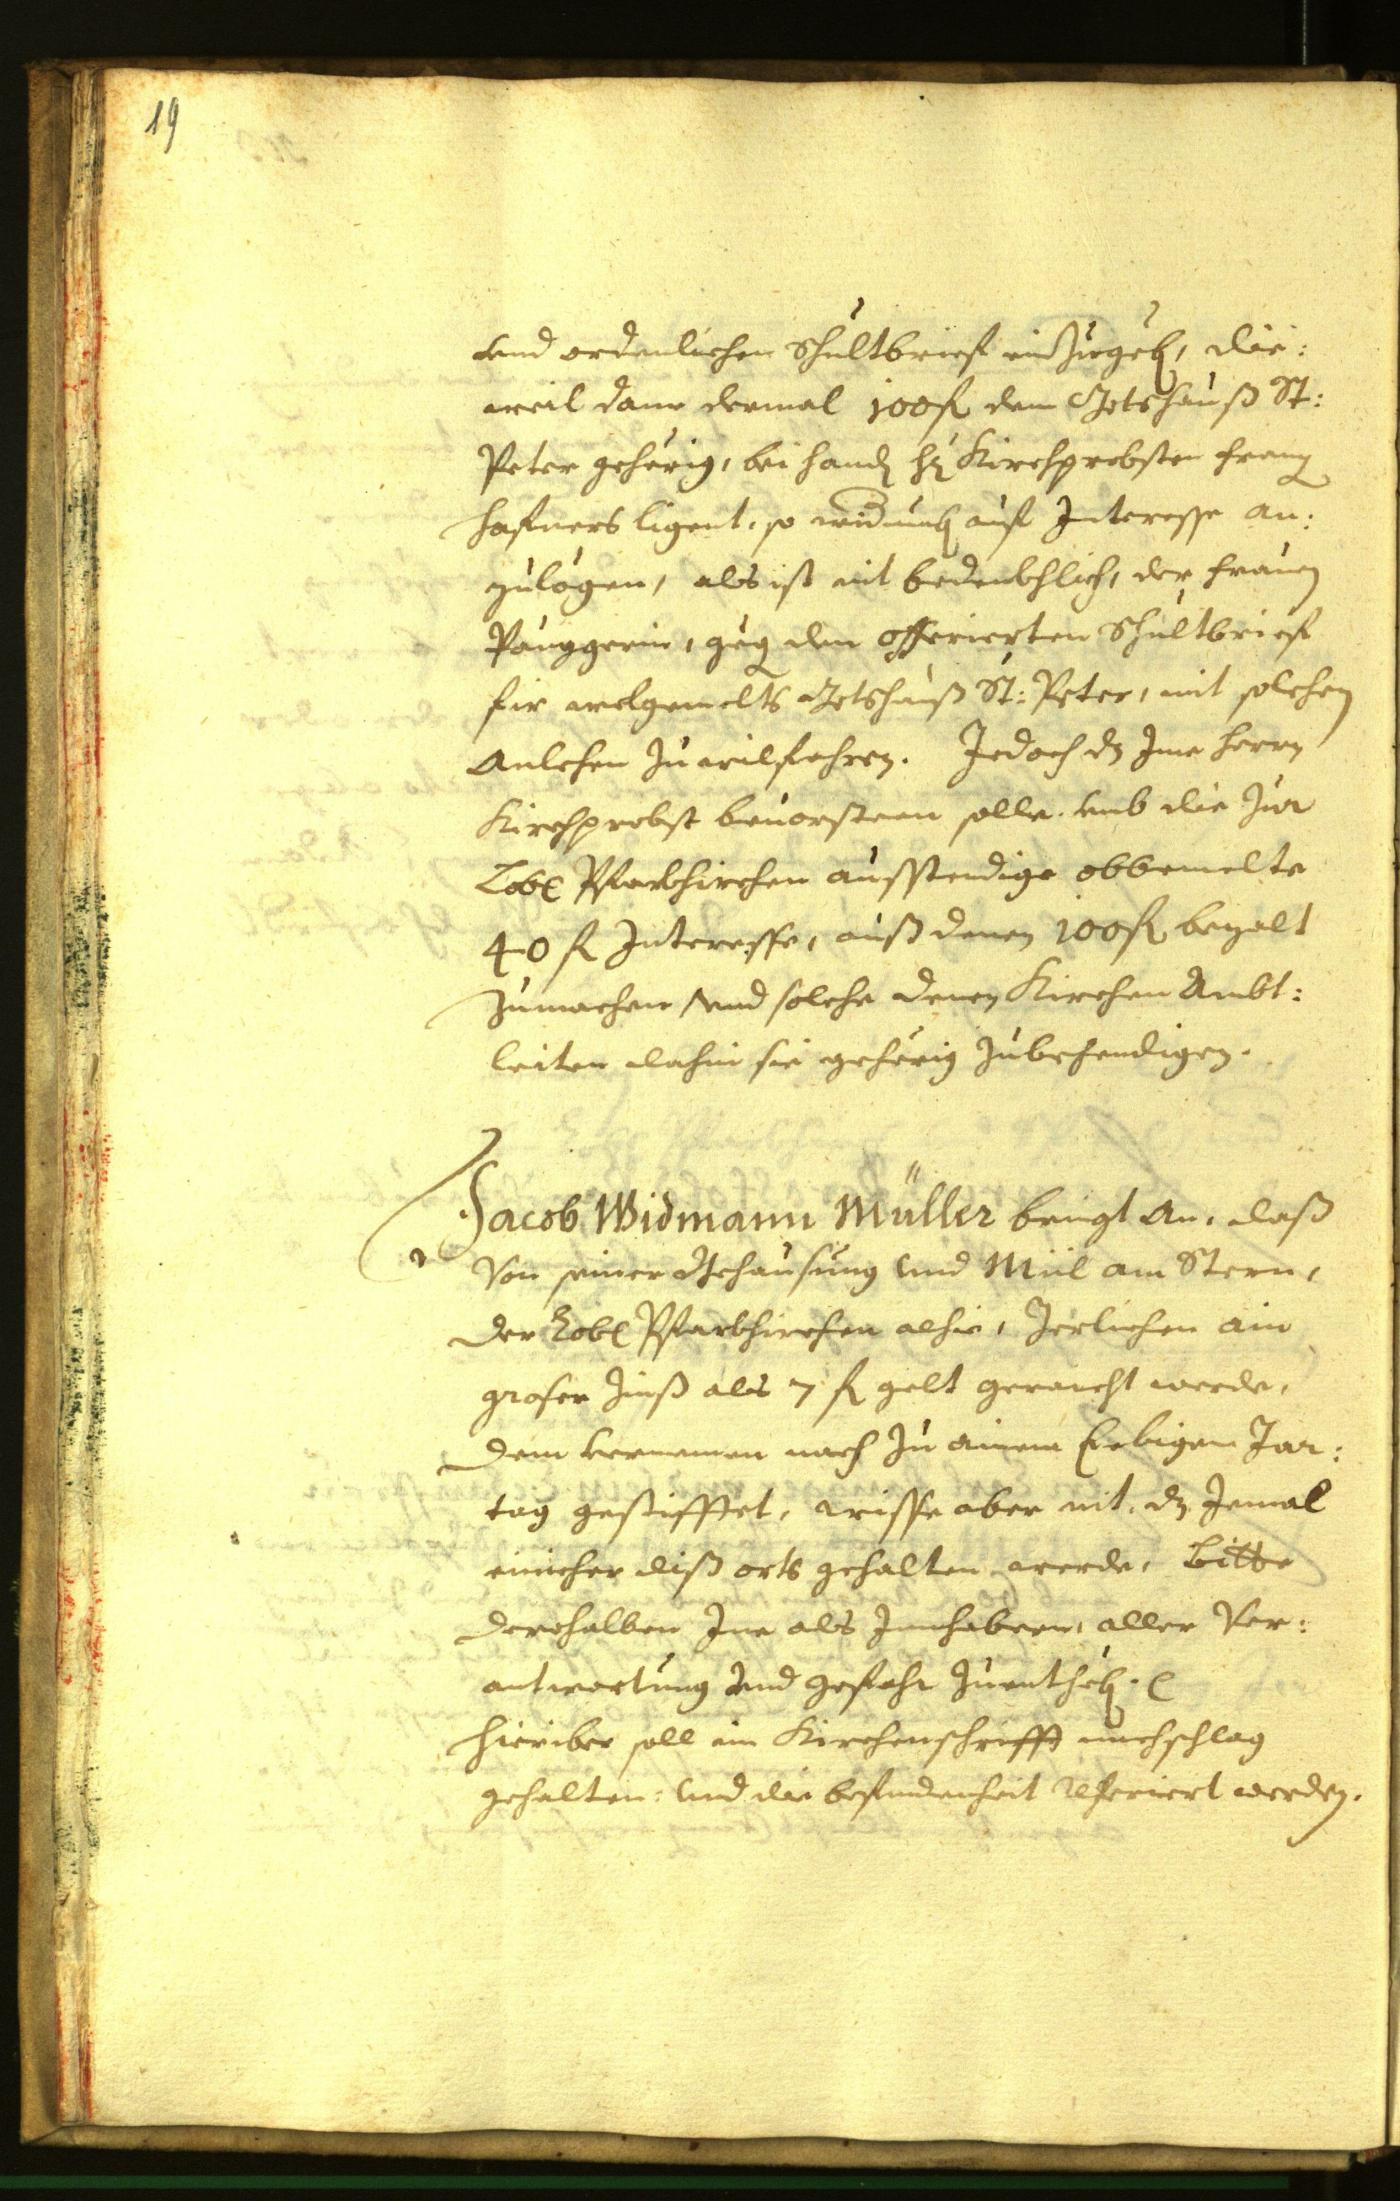 19
vnd ordenlichen Schultbrieff einzugeb, die:
weil dann dermal 100 fl dem Gotshauß St:
Peter geherig, bei handen h: Kirchprobsten Franz
Hafners ligent, so widerumb auf Interesse an:
zulögen, als ist nit bedenkhlich, der Frauen
Pauggerin, geg den offerierten Schultbrief
fir wolgemelts Gotshauß St: Peter, mit solchen
Anlehen zu wilfahren. Jedoch dz Ime Herrn
Kirchprobst beuorsteen solle. vmb die zur
Lobl Pfarkhirchen ausstendige obbemelte
40 fl Interesse, auß denen 100 fl bezalt
zumachen vnd solche denen Kirchen Ambt:
leiten dahin sie geherig zubehendigen.
Jacob Widmann Müller bringt an, daß
Von seiner Behausung vnd Mül am Stern,
der Lobl Pfarkhirchen alhie, Jerlichen ain
groser Zinß als 7 fl gelt geraicht werde,
dem vernemen nach zu ainem Ewigen Jar:
tag gestifftet, wisse aber nit, dz Jemal
ainicher diß orts gehalten werde, Bitte
derohalben Ine als Innhabern, aller Ver:
antwortung vnd gefahr zuentheb.
Hieriber soll im Kirchenschrifft nachschlag
gehalten: vnd die befindenheit referiert werden.